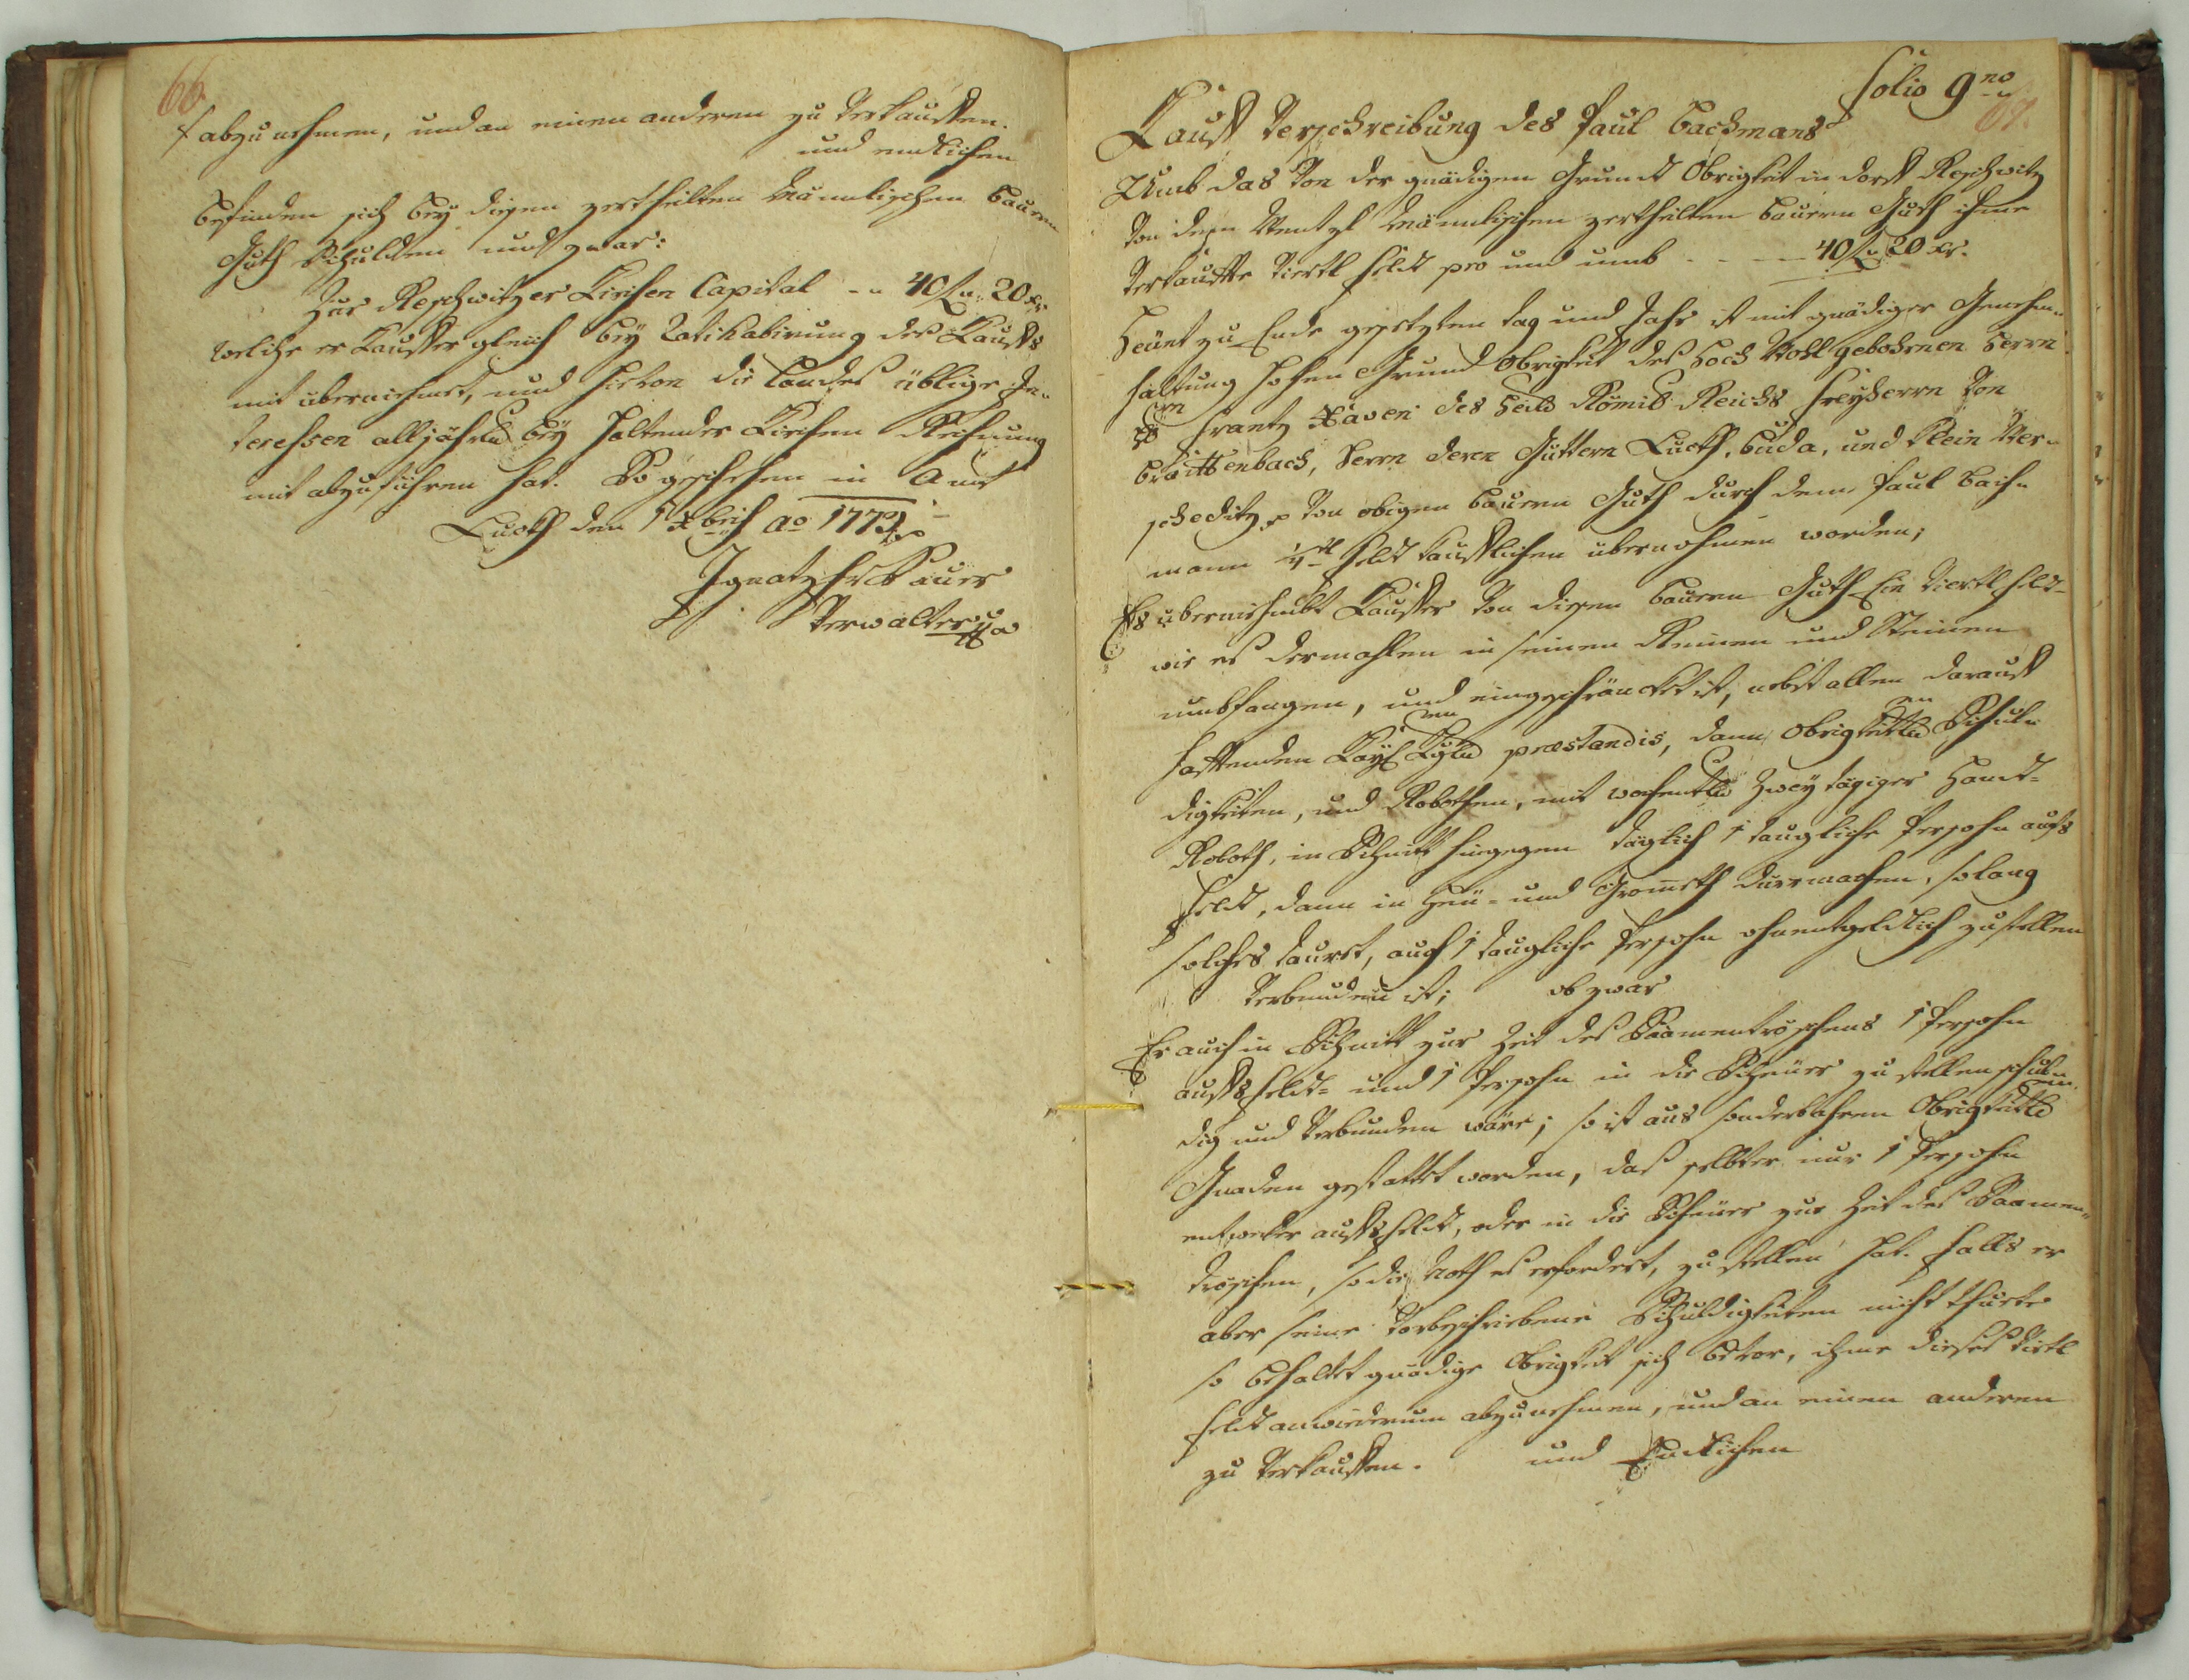 66.
abzunehmen, und an einen anderen zu verkauffen.
und endlichen
befinden sich bey diesen zertheilten Männlischen Bauern
Guth Schulden und zwar:
Zur Reschwitzer Kirchen Capital -- 40 f. 20 xr
welche er Kauffer gleich bey Ratihabirung des Kauffs
mit übernehmet, und hievon die Landes übliche In-
teressen alljährl. bey haltender Kirchen Rechnung
mit abzuführen hat. So geschehen in Amt
Luoth den 1 xbris ao 177
Ignatz
Verwalter
folio 9no
67.
Kauff Verschreibung des Paul Bachmans
Umb das von der gnädigen Grundt Obrigkeit in dorff Reschwitz
von dem Wentzl Männlischen zertheilten Bauern Guth ihme
verkauffte viertl feldt pro und umb - - - 40 f 20 xr.
Heunt zu Ende gesetzten tag und Jahr ist mit gnädiger Genehm-
haltung hohen Grund Obrigkeit des Hoch Wohl gebohrnen Herrn
Frantz Xaveri des Heil. Römis. Reichs Freyherrn von
Bräittenbach, Herrn deren Güttern Luoth, Buda, und Klein Wer-
scheditz von obigen Bauern Guth durch denn Paul Bach-
mann ¼tl feldt käufflichen übernohmen worden;
Es übernehmbt Kauffer von diesen Bauern Guth Ein viertl feld
wie es dermahlen in seinen Reinen und Steinen
umbfangen, und eingeschräncket ist, nebst allen darauff
hafftenden Kays. Kgl. præstandis, dann Obrigkeitl. Schul-
digkeiten, und Robothen, mit wochentl. Zwey tägiger Handt-
Roboth, in Schnitt hingegen täglich 1 taugliche Persohn aufs
feldt, dann in Heu- und Grometh dürrmachen, solang
solches dauret, auch 1 taugliche Persohn ohnentgeldlich zustellen
verbunden ist; obzwar
Er auch in Schnitt zur Zeit des Saamentröschens 1 Persohn
auffs feldt- und 1 Persohn in die Scheuer zu stellen schul-
dig und verbunden wäre; so ist aus sonderbahren Obrigkeitl.
Gnaden gestattet worden, daß selbter nur 1 Persohn
entweder auffs feldt, oder in die Scheuer zur Zeit des Saamen-
tröschen, so die Noth es erfordert, zu stellen hat. Falls er
aber seine vorbeschriebene Schuldigkeiten nicht thuete
so behaltet gnädige Obrigkeit sich bevor, ihme dieses viertl
feldt anwiederumb abzunehmen, und an einen anderen
zu verkauffen. und Endlichen